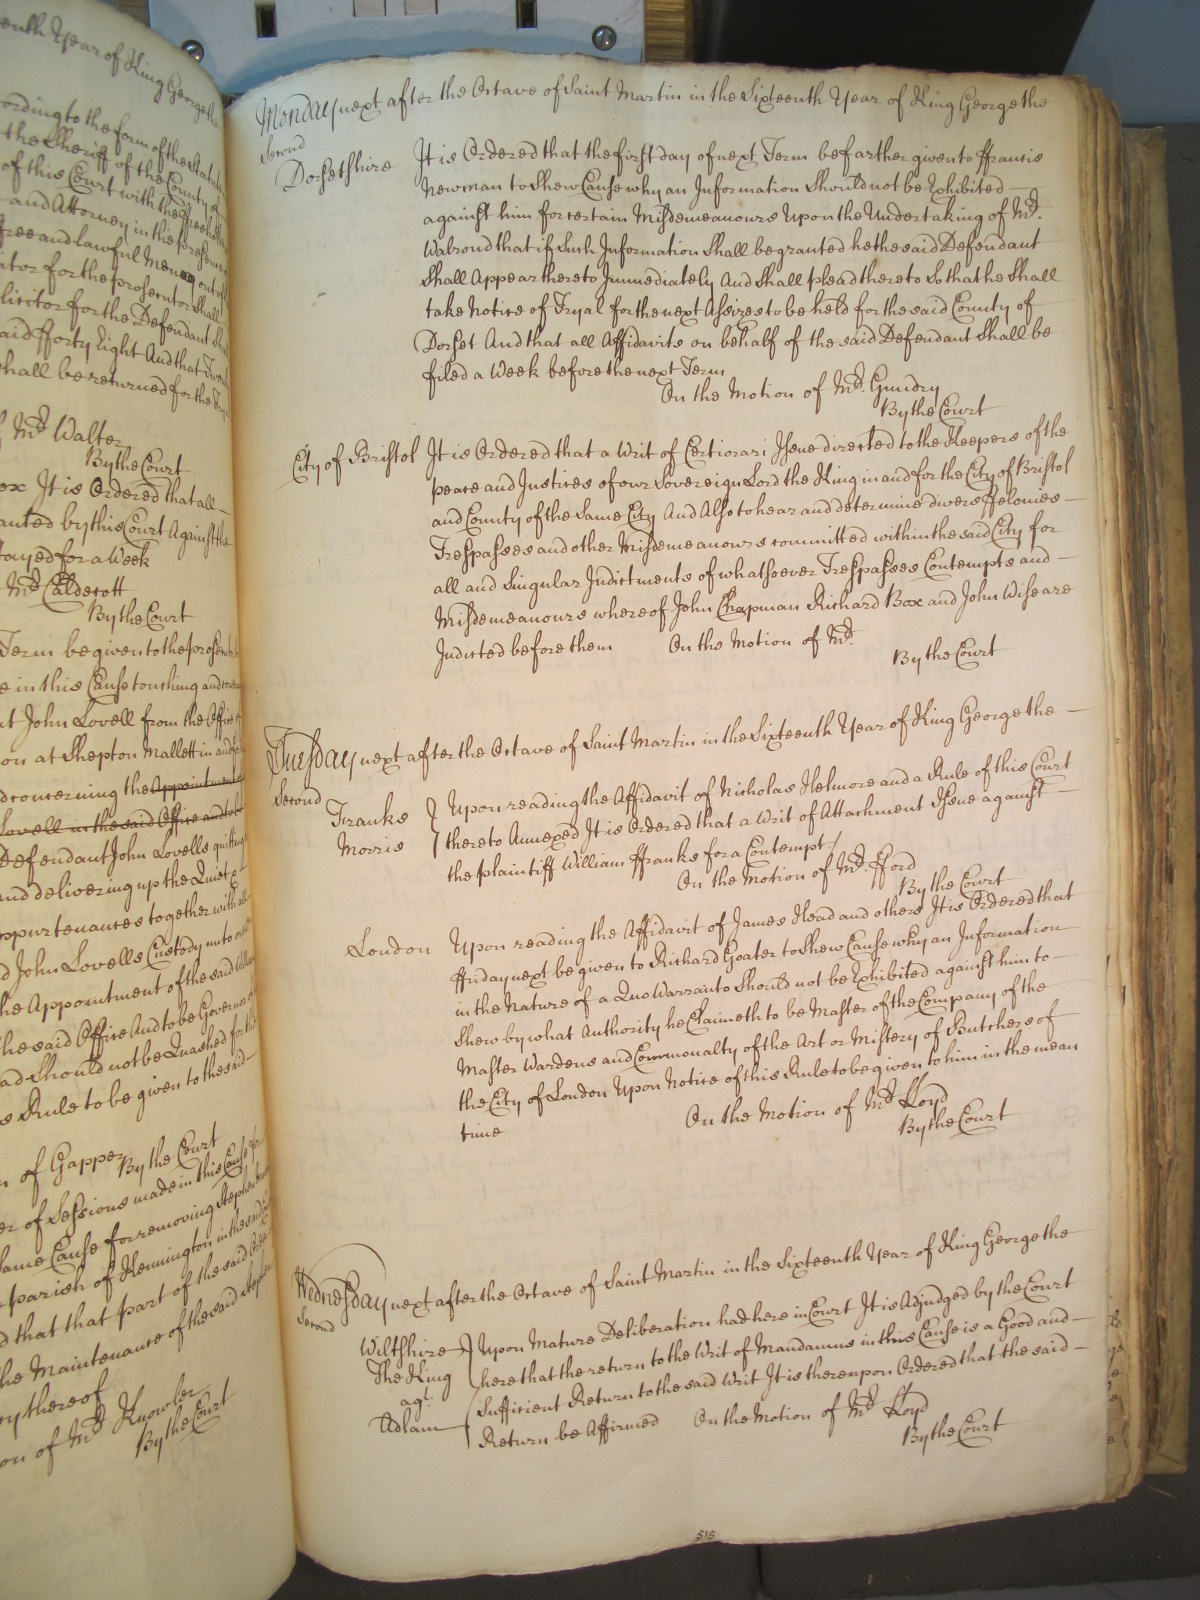 enth Year of King George the
ording to the form of the Statute
the Sheriff of the County of
of this Court with the ffreeholders
and Attorney in the presence
free and lawful Men out of
itor for the prosecutor Shall
licitor for the Defendant Shall
aid fforty Eight And that Twenty
shall be returned for the Tryal
Mr. Walter
By the Court
ox It is Ordered that all
anted by this Court Against the
tayed for a Week
Mr. Caldecott
By the Court
Term be given to the prosecutor
e in this Cause touching and
t John Lovell from the Office of
on at Shepton Mallett in and
d concerning the Appointment
Lovell in the said Office and
Defendant John Lovells quitting
and delivering up the Quiet
ppurtenances together with all
d John Lovells Custody unto
he Appointment of the said
he said Office And to be Governor of
ad Should not be Quashed for the
s Rule to be given to the said
n of Gapper
By the Court
er of Sessions made in this Cause for
Same Cause for removing Stephen
parish of Kennington in the said
d that that part of the said Order
the Maintenance of the said Stephen
ry thereof
on of Mr. Knowler
By the Court
Monday next after the Octave of Saint Martin in the Sixteenth Year of King George the
Second
Dorsetshire It is Ordered that the first day of next Term be farther given to ffrancis
Newman to Shew Cause why an Information Should not be Exhibited
against him for certain Misdemeanours Upon the Undertaking of Mr.
Walrond that if Such Information Shall be granted he the said Defendant
Shall Appear thereto Immediately And Shall plead thereto So that he Shall
take Notice of Tryal for the next Assizes to be held for the said County of
Dorset And that all Affidavits on behalf of the said Defendant Shall be
filed a Week before the next Term
On the Motion of Mr. Gundry
By the Court
City of Bristol It is Ordered that a Writ of Certiorari Issue directed to the Keepers of the
peace and Justices of our Sovereign Lord the King in and for the City of Bristol
and County of the Same City And Also to hear and determine divers ffelonies
Trespasses and other Misdemeanours committed within the said City for
all and Singular Indictments of whatsoever Trespasses Contempts and
Misdemeanours whereof John Chapman Richard Box and John Wise are
Indicted before them On the Motion of Mr.
By the Court
Tuesday next after the Octave of Saint Martin in the Sixteenth Year of King George the
Second
Franks } Upon reading the Affidavit of Nicholas Helmore and a Rule of this Court
Morris } thereto Annexed It is Ordered that a Writ of Attachment Issue against
the plaintiff William ffranks for a Contempt
On the Motion of Mr. fford
By the Court
London Upon reading the Affidavit of James Head and others It is Ordered that
ffriday next be given to Richard Goater to Shew Cause why an Information
in the Nature of a Quo Warranto Should not be Exhibited against him to
Shew by what Authority he Claimeth to be Master of the Company of the
Master Wardens and Commonalty of the Art or Mistery of Butchers of
the City of London Upon Notice of this Rule to be given to him in the mean
time
On the Motion of Mr. Lloyd
By the Court
Wednesday next after the Octave of Saint Martin in the Sixteenth Year of King George the
Second
Wiltshire } Upon Mature Deliberation had here in Court It is Adjudged by the Court
The King here that the return to the Writ of Mandamus in this Cause is a Good and
agt. Sufficient Return to the said Writ It is thereupon Ordered that the said
Adlam Return be Affirmed On the Motion of Mr. Lloyd
By the Court
515